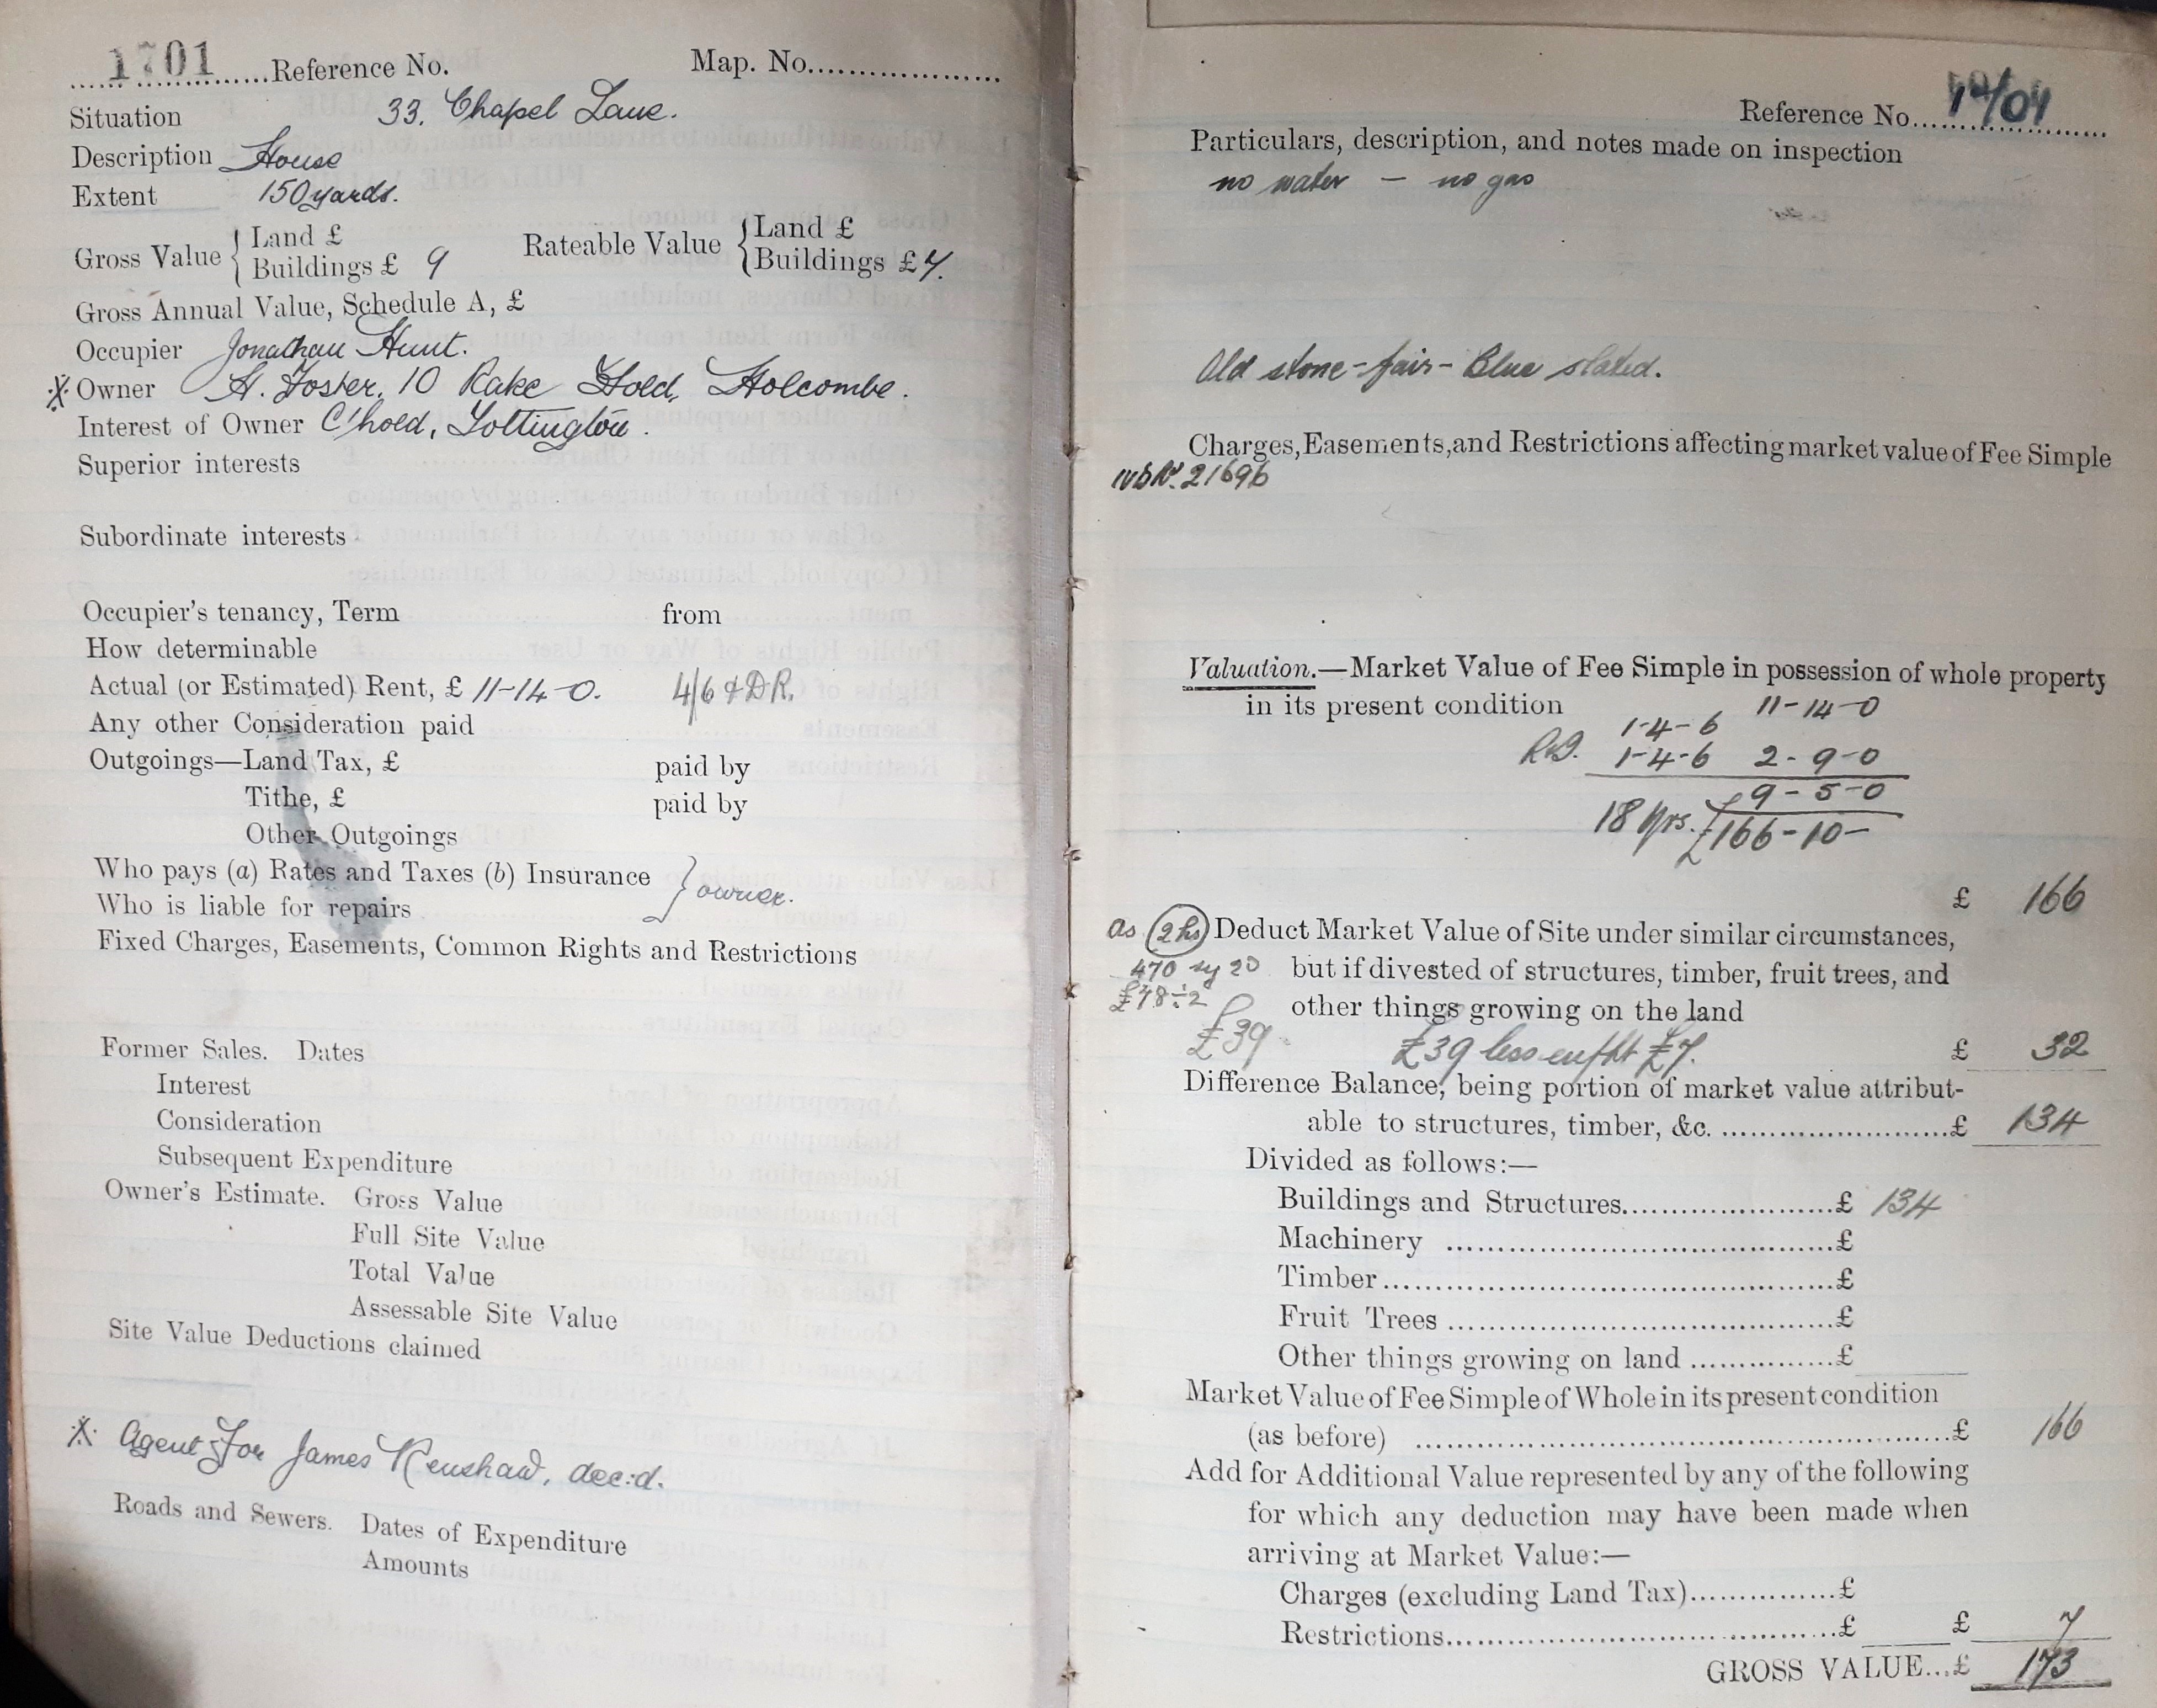 1701 Reference No. Map. No.
Situation 33, Chapel Lane.
Description House
Extent 150 yards.
Gross Value { Land £
Buildings £ 9
Rateable Value { Land £
Buildings £ 7.
Gross Annual Value, Schedule A, £
Occupier Jonathan Hunt.
X Owner H. Foster, 10 Rake Fold, Holcombe.
Interest of Owner C'hold, Tottington.
Superior interests
Subordinate interests
Occupier's tenancy, Term from
How determinable
Actual (or Estimated) Rent, £ 11-14-0. 4/6 & DR.
Any other Consideration paid
Outgoings—Land Tax, £ paid by
Tithe, £ paid by
Other Outgoings
Who pays (a) Rates and Taxes (b) Insurance } owner.
Who is liable for repairs
Fixed Charges, Easements, Common Rights and Restrictions
Former Sales. Dates
Interest
Consideration
Subsequent Expenditure
Owner's Estimate. Gross Value
Full Site Value
Total Value
Assessable Site Value
Site Value Deductions claimed
X Agent for James Renshaw, dec:d.
Roads and Sewers. Dates of Expenditure
Amounts
Reference No.
Particulars, description, and notes made on inspection
no water — no gas
Old stone - fair - Blue slated.
Charges, Easements, and Restrictions affecting market value of Fee Simple
21696
Valuation.—Market Value of Fee Simple in possession of whole property
in its present condition 11-14-0
1-4-6
1-4-6 2-9-0
9-5-0
18 yrs. £166-10-
£ 166
as 2 hs Deduct Market Value of Site under similar circumstances,
470 sy 20 but if divested of structures, timber, fruit trees, and
£78÷2 other things growing on the land
£39 £39 less enfht £7. £ 32
Difference Balance, being portion of market value attribut-
able to structures, timber, &c. £ 134
Divided as follows:—
Buildings and Structures £ 134
Machinery £
Timber £
Fruit Trees £
Other things growing on land £
Market Value of Fee Simple of Whole in its present condition
(as before) £ 166
Add for Additional Value represented by any of the following
for which any deduction may have been made when
arriving at Market Value:—
Charges (excluding Land Tax) £
Restrictions £ £ 7
GROSS VALUE...£ 173